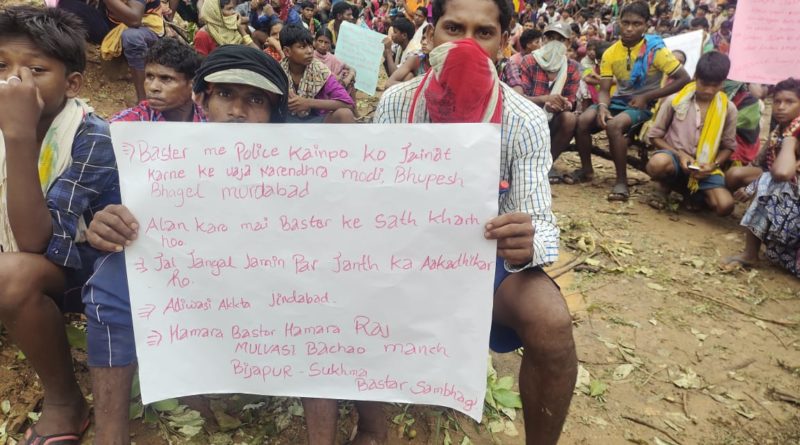 ⇒ Baster me Police Kainpo ko Jainat
Karne ke vaja Narendhra modi, Bhupesh
Bhagel murdabad
Alan karo mai Bastar ke Sath kharh
hoo.
⇒ Jal Jangal Jamin Par Janth ka Aakadhikar
Ho.
⇒ Adiwasi Akkta Jindabad.
⇒ Hamara Bastar Hamara Raj
MULVASI Bachao manch
Bijapur - Sukhma
Bastar Sambhag